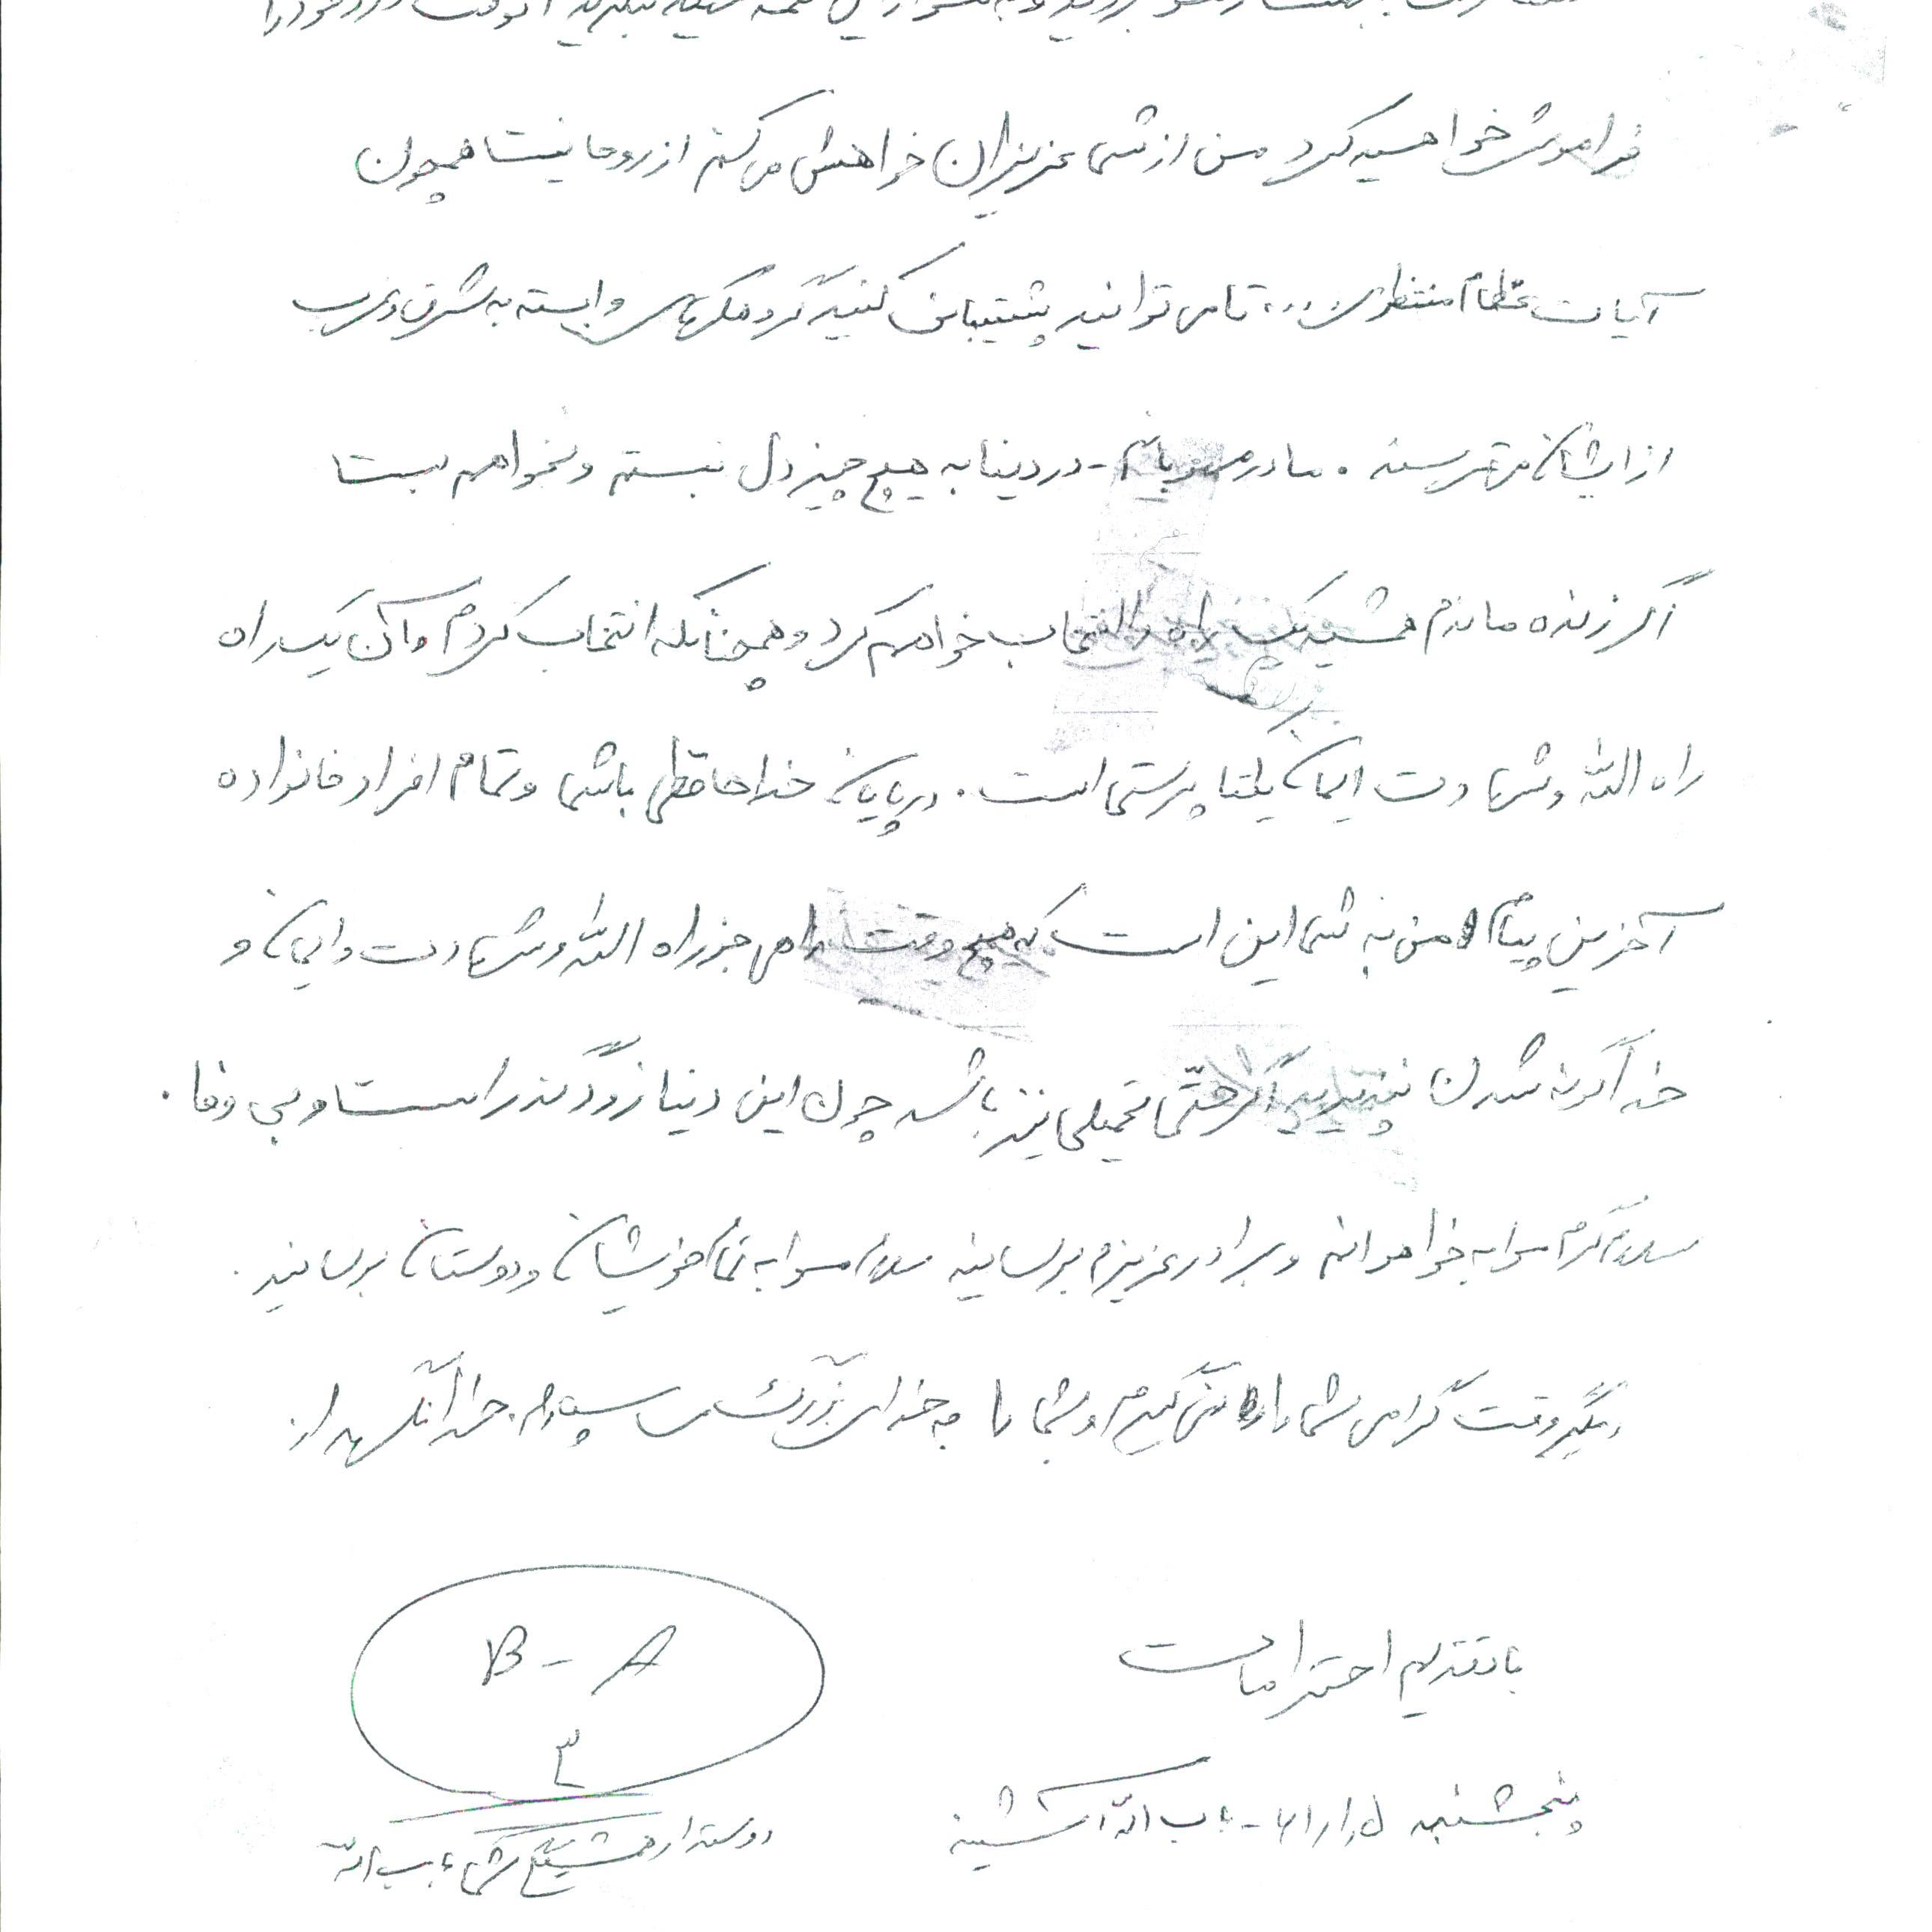 فراموش خواهید کرد من از شما عزیزان خواهش می کنم از روحانیت همچون
آیات عظام منتظری ... تا می توانید پشتیبانی کنید گروهکهای وابسته به شرق و غرب
از ایشان می ترسند . مادر مهربانم - در دنیا به هیچ چیز دل نبستم و نخواهم بست
اگر زنده ماندم همیشه یک راه را انتخاب خواهم کرد و همچنانکه انتخاب کردم و آن یک راه
راه الله و شهادت ایمان یکتا پرستی است . در پایان خداحافظی باشما و تمام افراد خانواده
آخرین پیام من به شما این است که هیچ وقت راهی جز راه الله و شهادت و ایمان و
خداگونه شدن نپذیرید اگر حتّی تحمیلی نیز باشد چون این دنیا زودگذر است و بی وفا .
سلام گرم مرا به خواهرانم و برادر عزیزم برسانید سلام مرا به تمام خویشان و دوستان برسانید .
دیگر وقت گرامی شما را نمی گیرم و شما را به خدای بزرگ می سپارم . خدا نگهدار
با تقدیم احترامات
B - A
پنجشنبه
دوستدار همیشگی شما